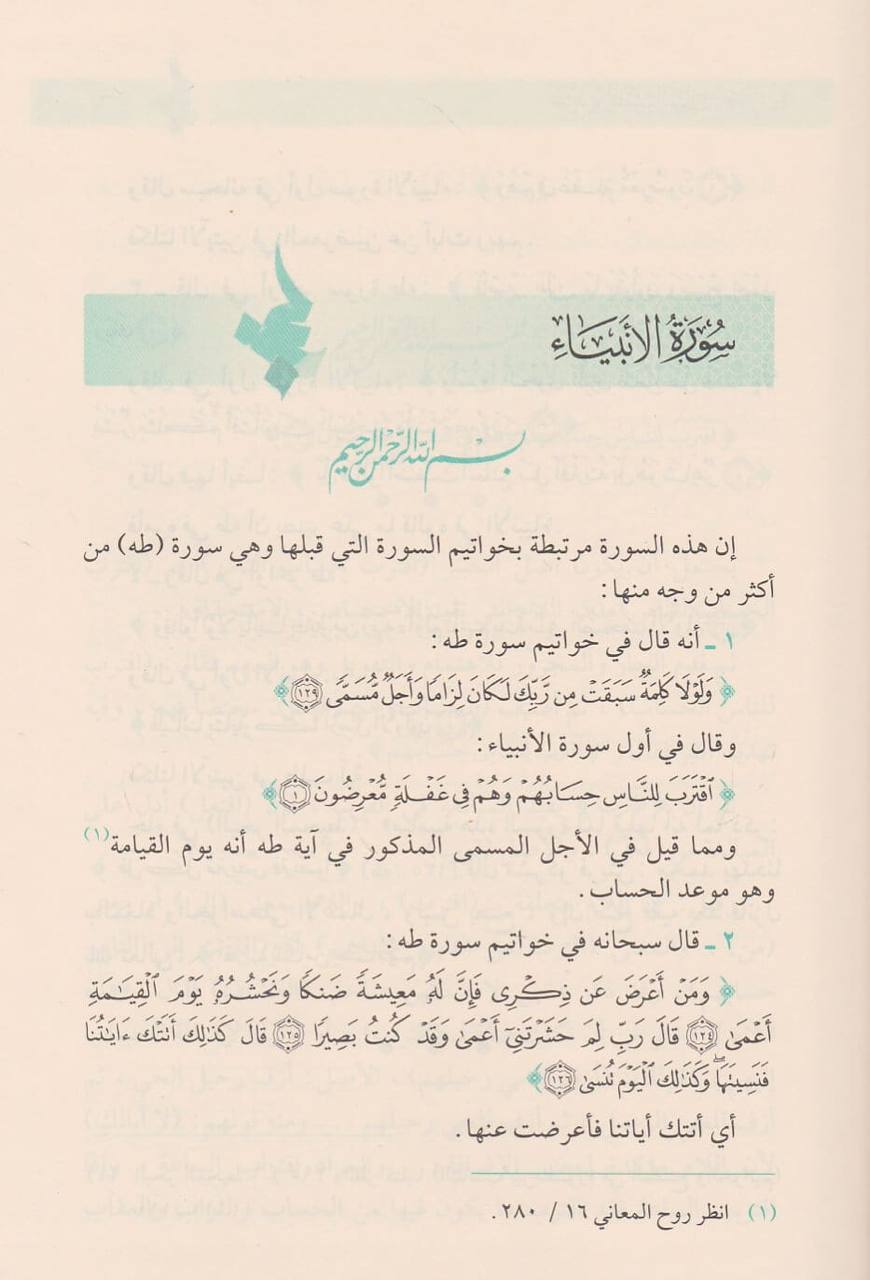 سُورَةُ الأَنبِيَاءِ
بسم الله الرحمن الرحيم
إن هذه السورة مرتبطة بخواتيم السورة التي قبلها وهي سورة (طه) من
أكثر من وجه منها:
١ ـ أنه قال في خواتيم سورة طه:
﴿ وَلَوْلَا كَلِمَةٌ سَبَقَتْ مِن رَّبِّكَ لَكَانَ لِزَامًا وَأَجَلٌ مُّسَمًّى ۝١٢٩ ﴾
وقال في أول سورة الأنبياء:
﴿ ٱقْتَرَبَ لِلنَّاسِ حِسَابُهُمْ وَهُمْ فِى غَفْلَةٍ مُّعْرِضُونَ ۝١ ﴾
ومما قيل في الأجل المسمى المذكور في آية طه أنه يوم القيامة(١)
وهو موعد الحساب.
٢ ـ قال سبحانه في خواتيم سورة طه:
﴿ وَمَنْ أَعْرَضَ عَن ذِكْرِى فَإِنَّ لَهُۥ مَعِيشَةً ضَنكًا وَنَحْشُرُهُۥ يَوْمَ ٱلْقِيَـٰمَةِ
أَعْمَىٰ ۝١٢٤ قَالَ رَبِّ لِمَ حَشَرْتَنِىٓ أَعْمَىٰ وَقَدْ كُنتُ بَصِيرًا ۝١٢٥ قَالَ كَذَٰلِكَ أَتَتْكَ ءَايَـٰتُنَا
فَنَسِيتَهَا ۖ وَكَذَٰلِكَ ٱلْيَوْمَ تُنسَىٰ ۝١٢٦ ﴾
أي أتتك أياتنا فأعرضت عنها.
(١) انظر روح المعاني ١٦ / ٢٨٠.